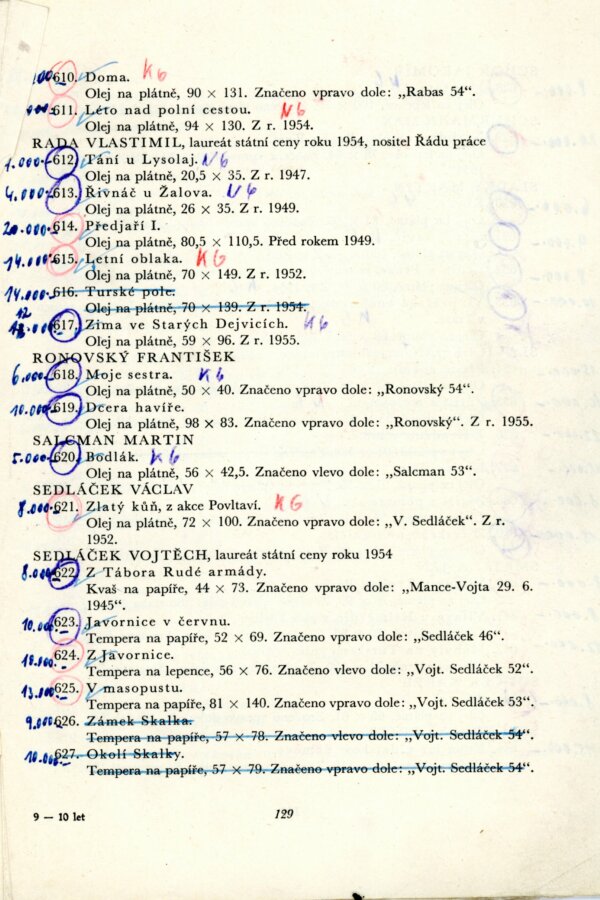 610. Doma. K6
Olej na plátně, 90 × 131. Značeno vpravo dole: „Rabas 54“.
611. Léto nad polní cestou. N6
Olej na plátně, 94 × 130. Z r. 1954.
RADA VLASTIMIL, laureát státní ceny roku 1954, nositel Řádu práce
1.000.- 612. Tání u Lysolaj. N6
Olej na plátně, 20,5 × 35. Z r. 1947.
4.000.- 613. Řivnáč u Žalova. N6
Olej na plátně, 26 × 35. Z r. 1949.
20.000.- 614. Předjaří I.
Olej na plátně, 80,5 × 110,5. Před rokem 1949.
14.000.- 615. Letní oblaka. KG
Olej na plátně, 70 × 149. Z r. 1952.
14.000.- 616. Turské pole.
Olej na plátně, 70 × 139. Z r. 1954.
12
617. Zima ve Starých Dejvicích. K6
Olej na plátně, 59 × 96. Z r. 1955.
RONOVSKÝ FRANTIŠEK
6.000.- 618. Moje sestra. K6
Olej na plátně, 50 × 40. Značeno vpravo dole: „Ronovský 54“.
10.000.- 619. Dcera havíře.
Olej na plátně, 98 × 83. Značeno vpravo dole: „Ronovský“. Z r. 1955.
SALCMAN MARTIN
5.000.- 620. Bodlák. K6
Olej na plátně, 56 × 42,5. Značeno vlevo dole: „Salcman 53“.
SEDLÁČEK VÁCLAV
8.000.- 621. Zlatý kůň, z akce Povltaví. KG
Olej na plátně, 72 × 100. Značeno vpravo dole: „V. Sedláček“. Z r.
1952.
SEDLÁČEK VOJTĚCH, laureát státní ceny roku 1954
8.000.- 622. Z Tábora Rudé armády.
Kvaš na papíře, 44 × 73. Značeno vpravo dole: „Mance-Vojta 29. 6.
1945“.
10.000.- 623. Javornice v červnu.
Tempera na papíře, 52 × 69. Značeno vpravo dole: „Sedláček 46“.
18.000.- 624. Z Javornice.
Tempera na lepence, 56 × 76. Značeno vlevo dole: „Vojt. Sedláček 52“.
13.000.- 625. V masopustu.
Tempera na papíře, 81 × 140. Značeno vpravo dole: „Vojt. Sedláček 53“.
9.000.- 626. Zámek Skalka.
Tempera na papíře, 57 × 78. Značeno vlevo dole: „Vojt. Sedláček 54“.
10.000.- 627. Okolí Skalky.
Tempera na papíře, 57 × 79. Značeno vpravo dole: „Vojt. Sedláček 54“.
9 — 10 let
129